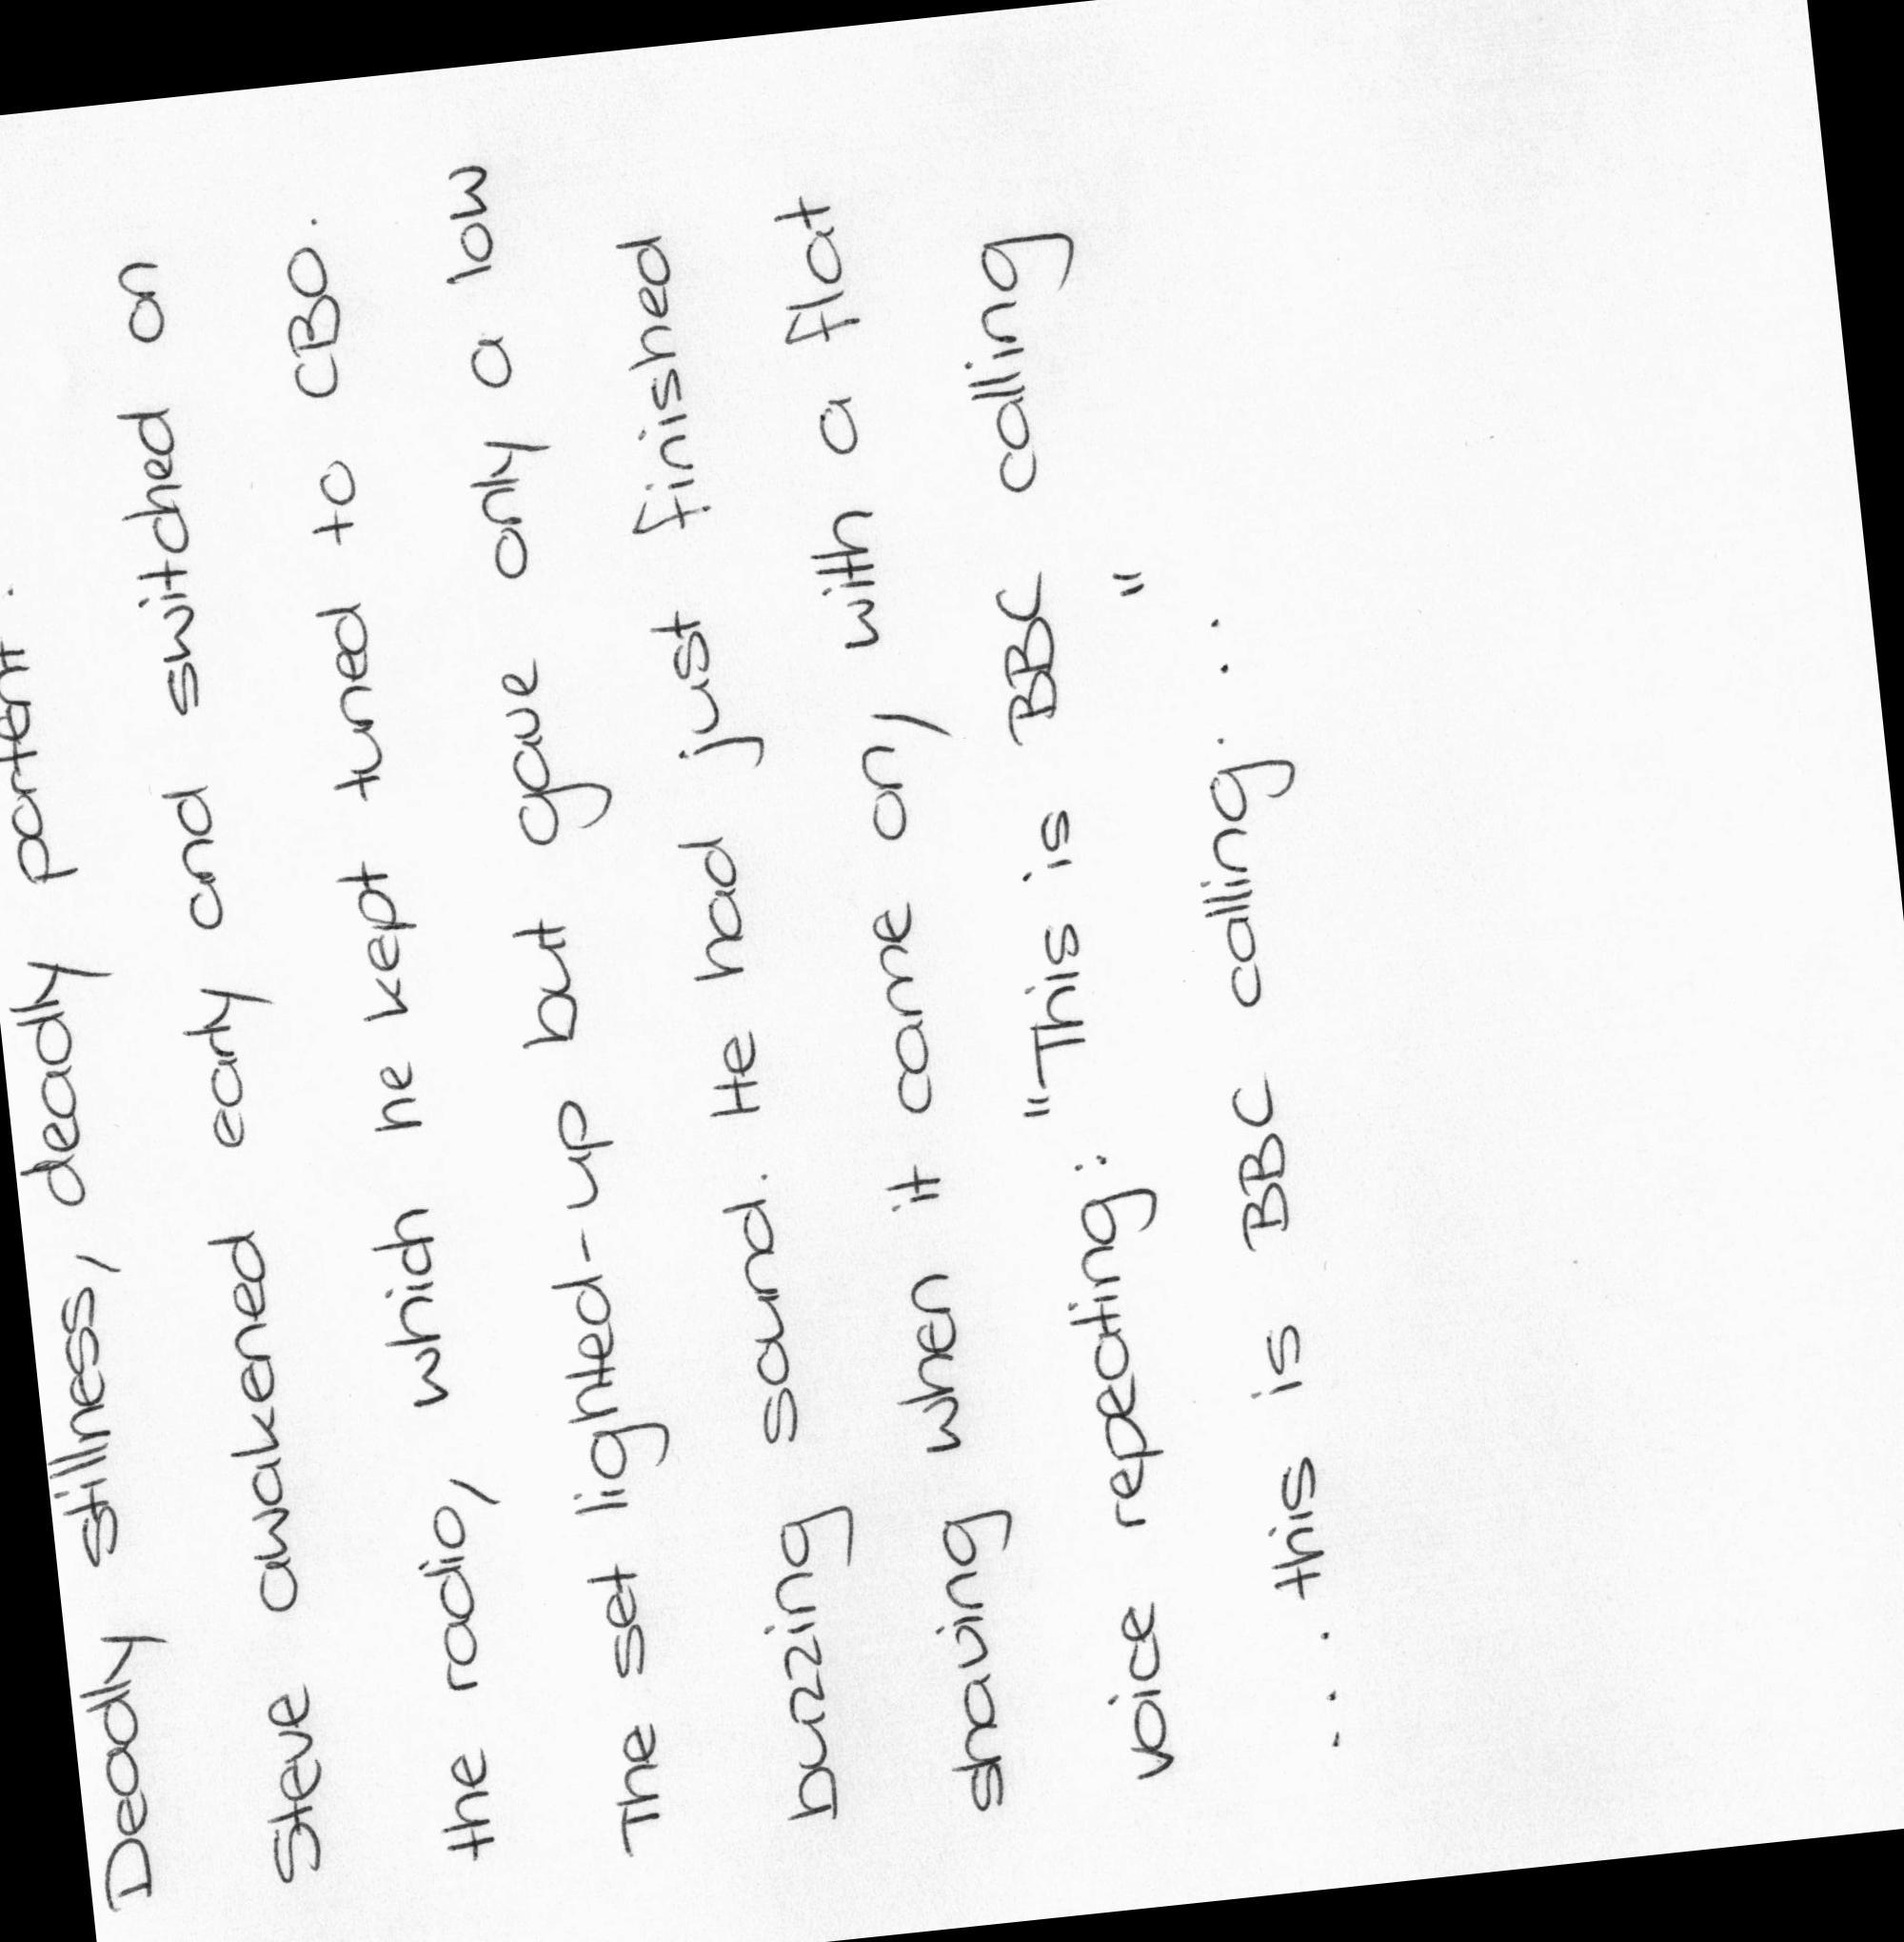 Deadly stillness, deadly portent.
Steve awakened early and switched on
the radio, which he kept tuned to CBO.
The set lighted-up but gave only a low
buzzing sound. He had just finished
shaving when it came on, with a flat
voice repeating: "This is BBC calling
... this is BBC calling...."